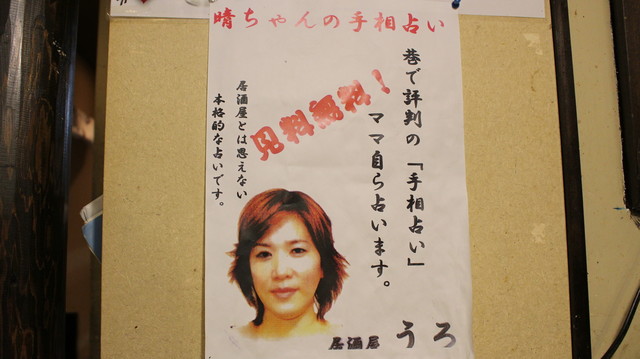 晴ちゃんの手相占い
巷で評判の「手相占い」
ママ自ら占います。
見料無料！
居酒屋とは思えない
本格的な占いです。
居酒屋 うろ